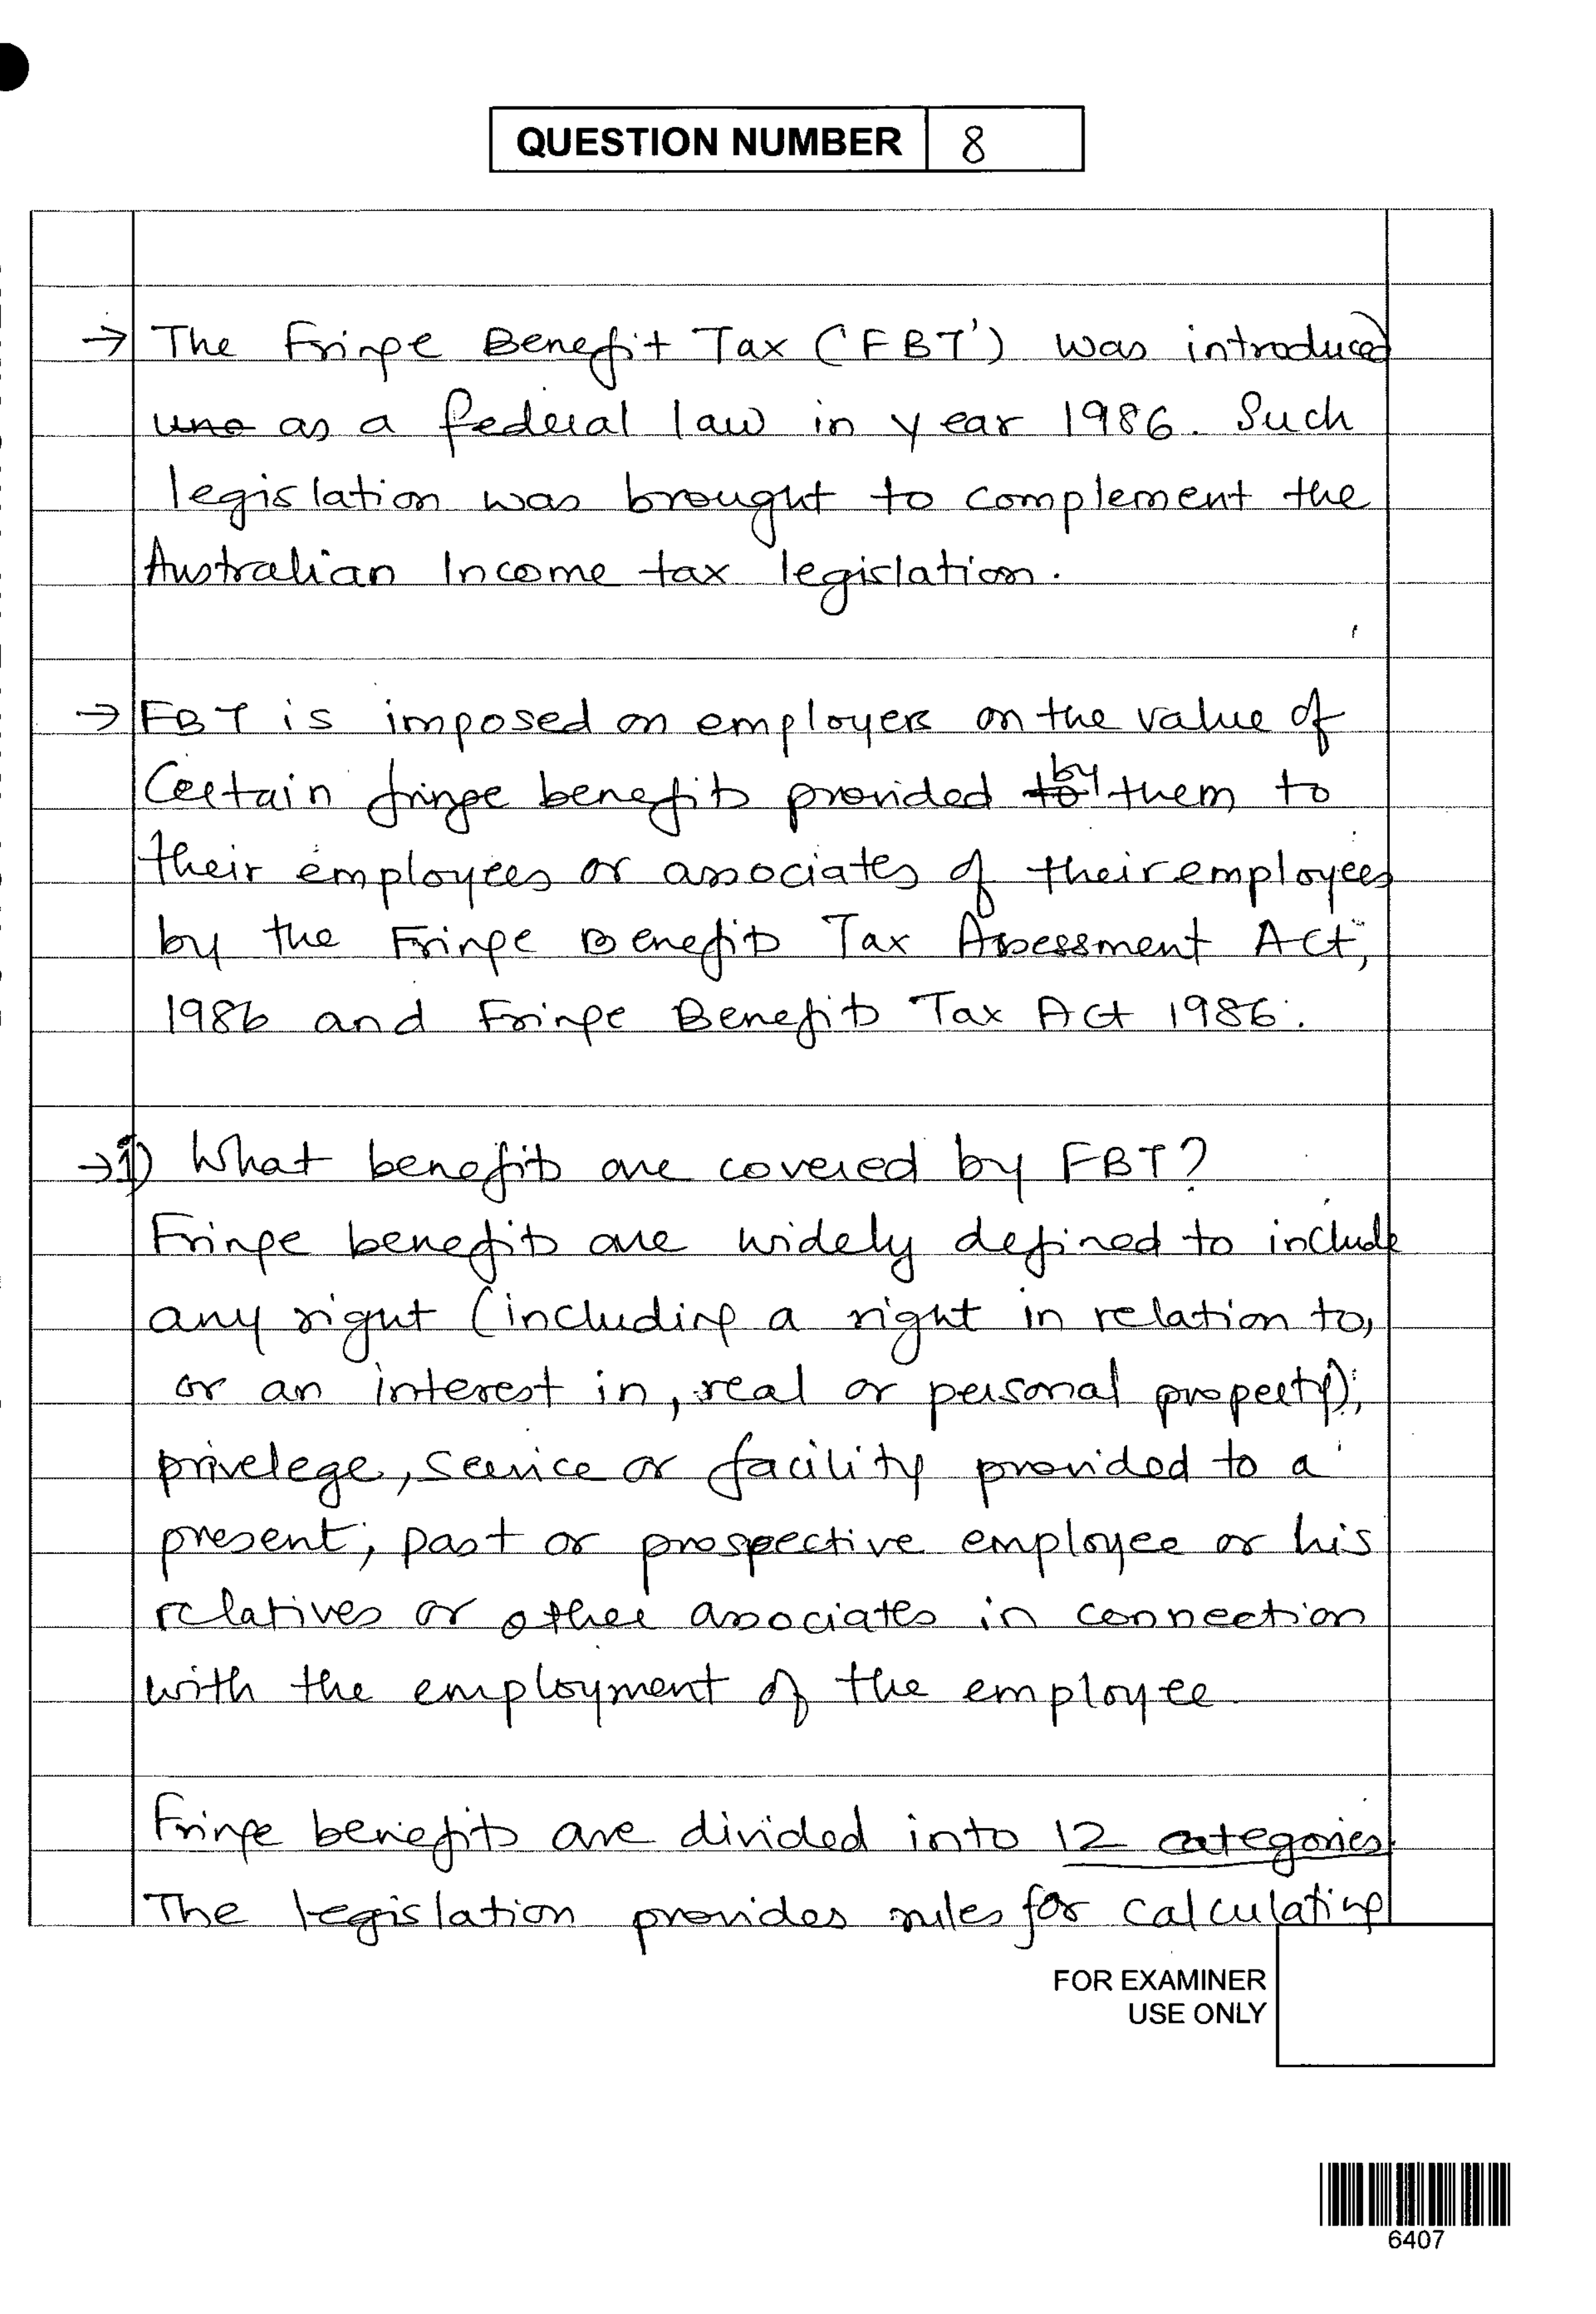 QUESTION NUMBER 8
→ The Fringe Benefit Tax ('FBT') was introduced
as a federal law in year 1986. Such
legislation was brought to complement the
Australian Income tax legislation.
→ FBT is imposed on employers on the value of
Certain fringe benefits provided to by them to
their employees or associates of their employees
by the Fringe Benefits Tax Assessment Act,
1986 and Fringe Benefits Tax Act 1986.
→ 1) What benefits are covered by FBT?
Fringe benefits are widely defined to include
any right (including a right in relation to,
or an interest in, real or personal property),
privelege, service or facility provided to a
present, past or prospective employee or his
relatives or other associates in connection
with the employment of the employee
Fringe benefits are divided into 12 categories.
The legislation provides rules for calculating
FOR EXAMINER
USE ONLY
6407